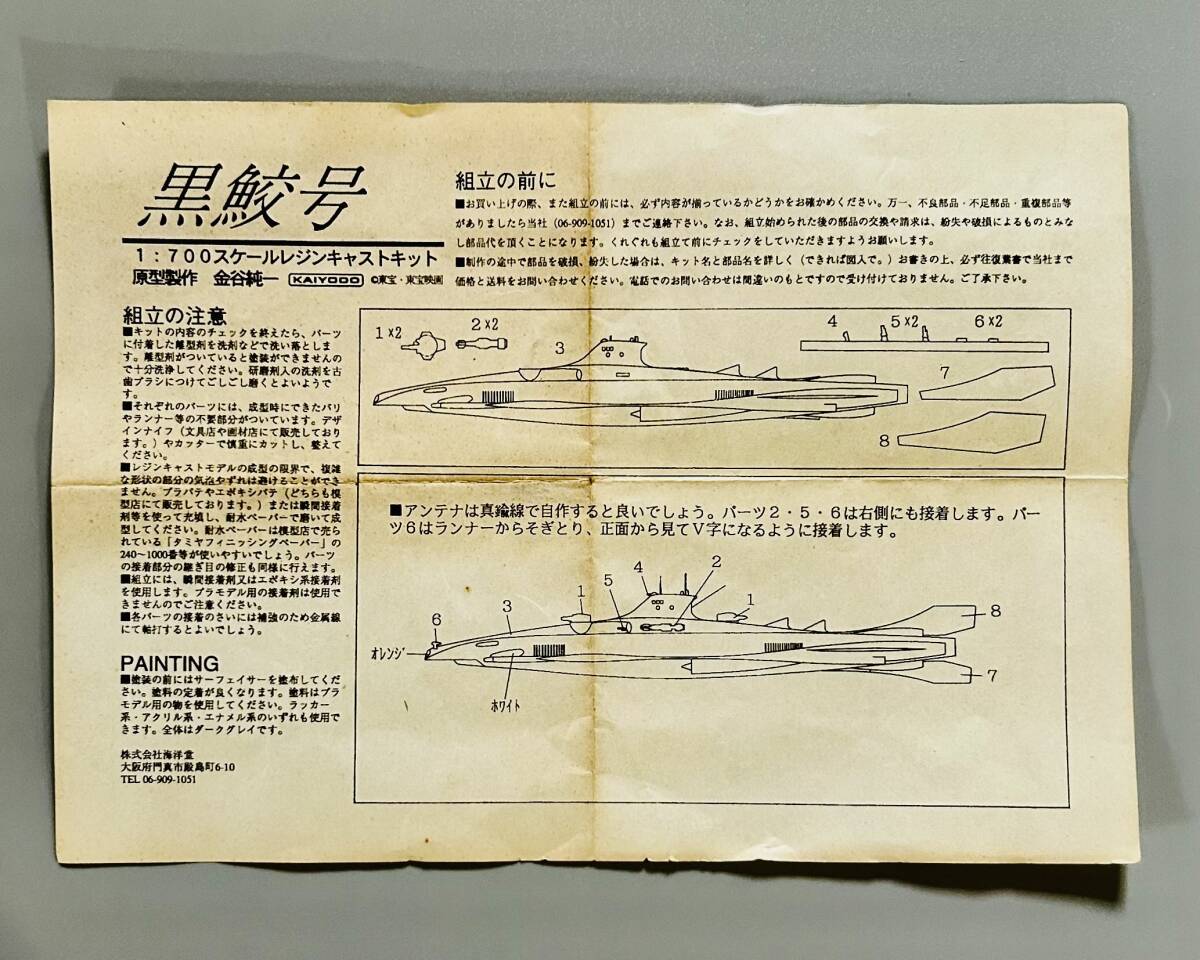 黒鮫号
1:700スケールレジンキャストキット
原型製作 金谷純一 KAIYODO ©東宝・東宝映画
組立の前に
■お買い上げの際、また組立の前には、必ず内容が揃っているかどうかをお確かめください。万一、不良部品・不足部品・重複部品等
がありましたら当社(06-909-1051)までご連絡下さい。なお、組立始められた後の部品の交換や請求は、紛失や破損によるものとみな
し部品代を頂くことになります。くれぐれも組立て前にチェックをしていただきますようお願いします。
■制作の途中で部品を破損、紛失した場合は、キット名と部品名を詳しく(できれば図入で。)お書きの上、必ず往復葉書で当社まで
価格と送料をお問い合わせください。電話でのお問い合わせは間違いのもとですので受け付けておりません。ご了承下さい。
組立の注意
■キットの内容のチェックを終えたら、パーツ
に付着した離型剤を洗剤などで洗い落としま
す。離型剤がついていると塗装ができませんの
で十分洗浄してください。研磨剤入の洗剤を古
歯ブラシにつけてごしごし磨くとよいようで
す。
■それぞれのパーツには、成型時にできたバリ
やランナー等の不要部分がついています。デザ
インナイフ(文具店や画材店にて販売しており
ます。)やカッターで慎重にカットし、整えて
ください。
■レジンキャストモデルの成型の限界で、複雑
な形状の部分の気泡やずれは避けることができ
ません。プラパテやエポキシパテ(どちらも模
型店にて販売しております。)または瞬間接着
剤等を使って充填し、耐水ペーパーで磨いて成
型してください。耐水ペーパーは模型店で売ら
れている「タミヤフィニッシングペーパー」の
240～1000番等が使いやすいでしょう。パーツ
の接着部分の継ぎ目の修正も同様に行えます。
■組立には、瞬間接着剤又はエポキシ系接着剤
を使用します。プラモデル用の接着剤は使用で
きませんのでご注意ください。
■各パーツの接着のさいには補強のため金属線
にて軸打するとよいでしょう。
PAINTING
■塗装の前にはサーフェイサーを塗布してくだ
さい。塗料の定着が良くなります。塗料はプラ
モデル用の物を使用してください。ラッカー
系・アクリル系・エナメル系のいずれも使用で
きます。全体はダークグレイです。
株式会社海洋堂
大阪府門真市殿島町6-10
TEL 06-909-1051
1x2
2x2
3
4
5x2
6x2
7
8
■アンテナは真鍮線で自作すると良いでしょう。パーツ2・5・6は右側にも接着します。パー
ツ6はランナーからそぎとり、正面から見てV字になるように接着します。
4
2
5
1
1
3
6
8
ｵﾚﾝｼﾞ
7
ﾎﾜｲﾄ